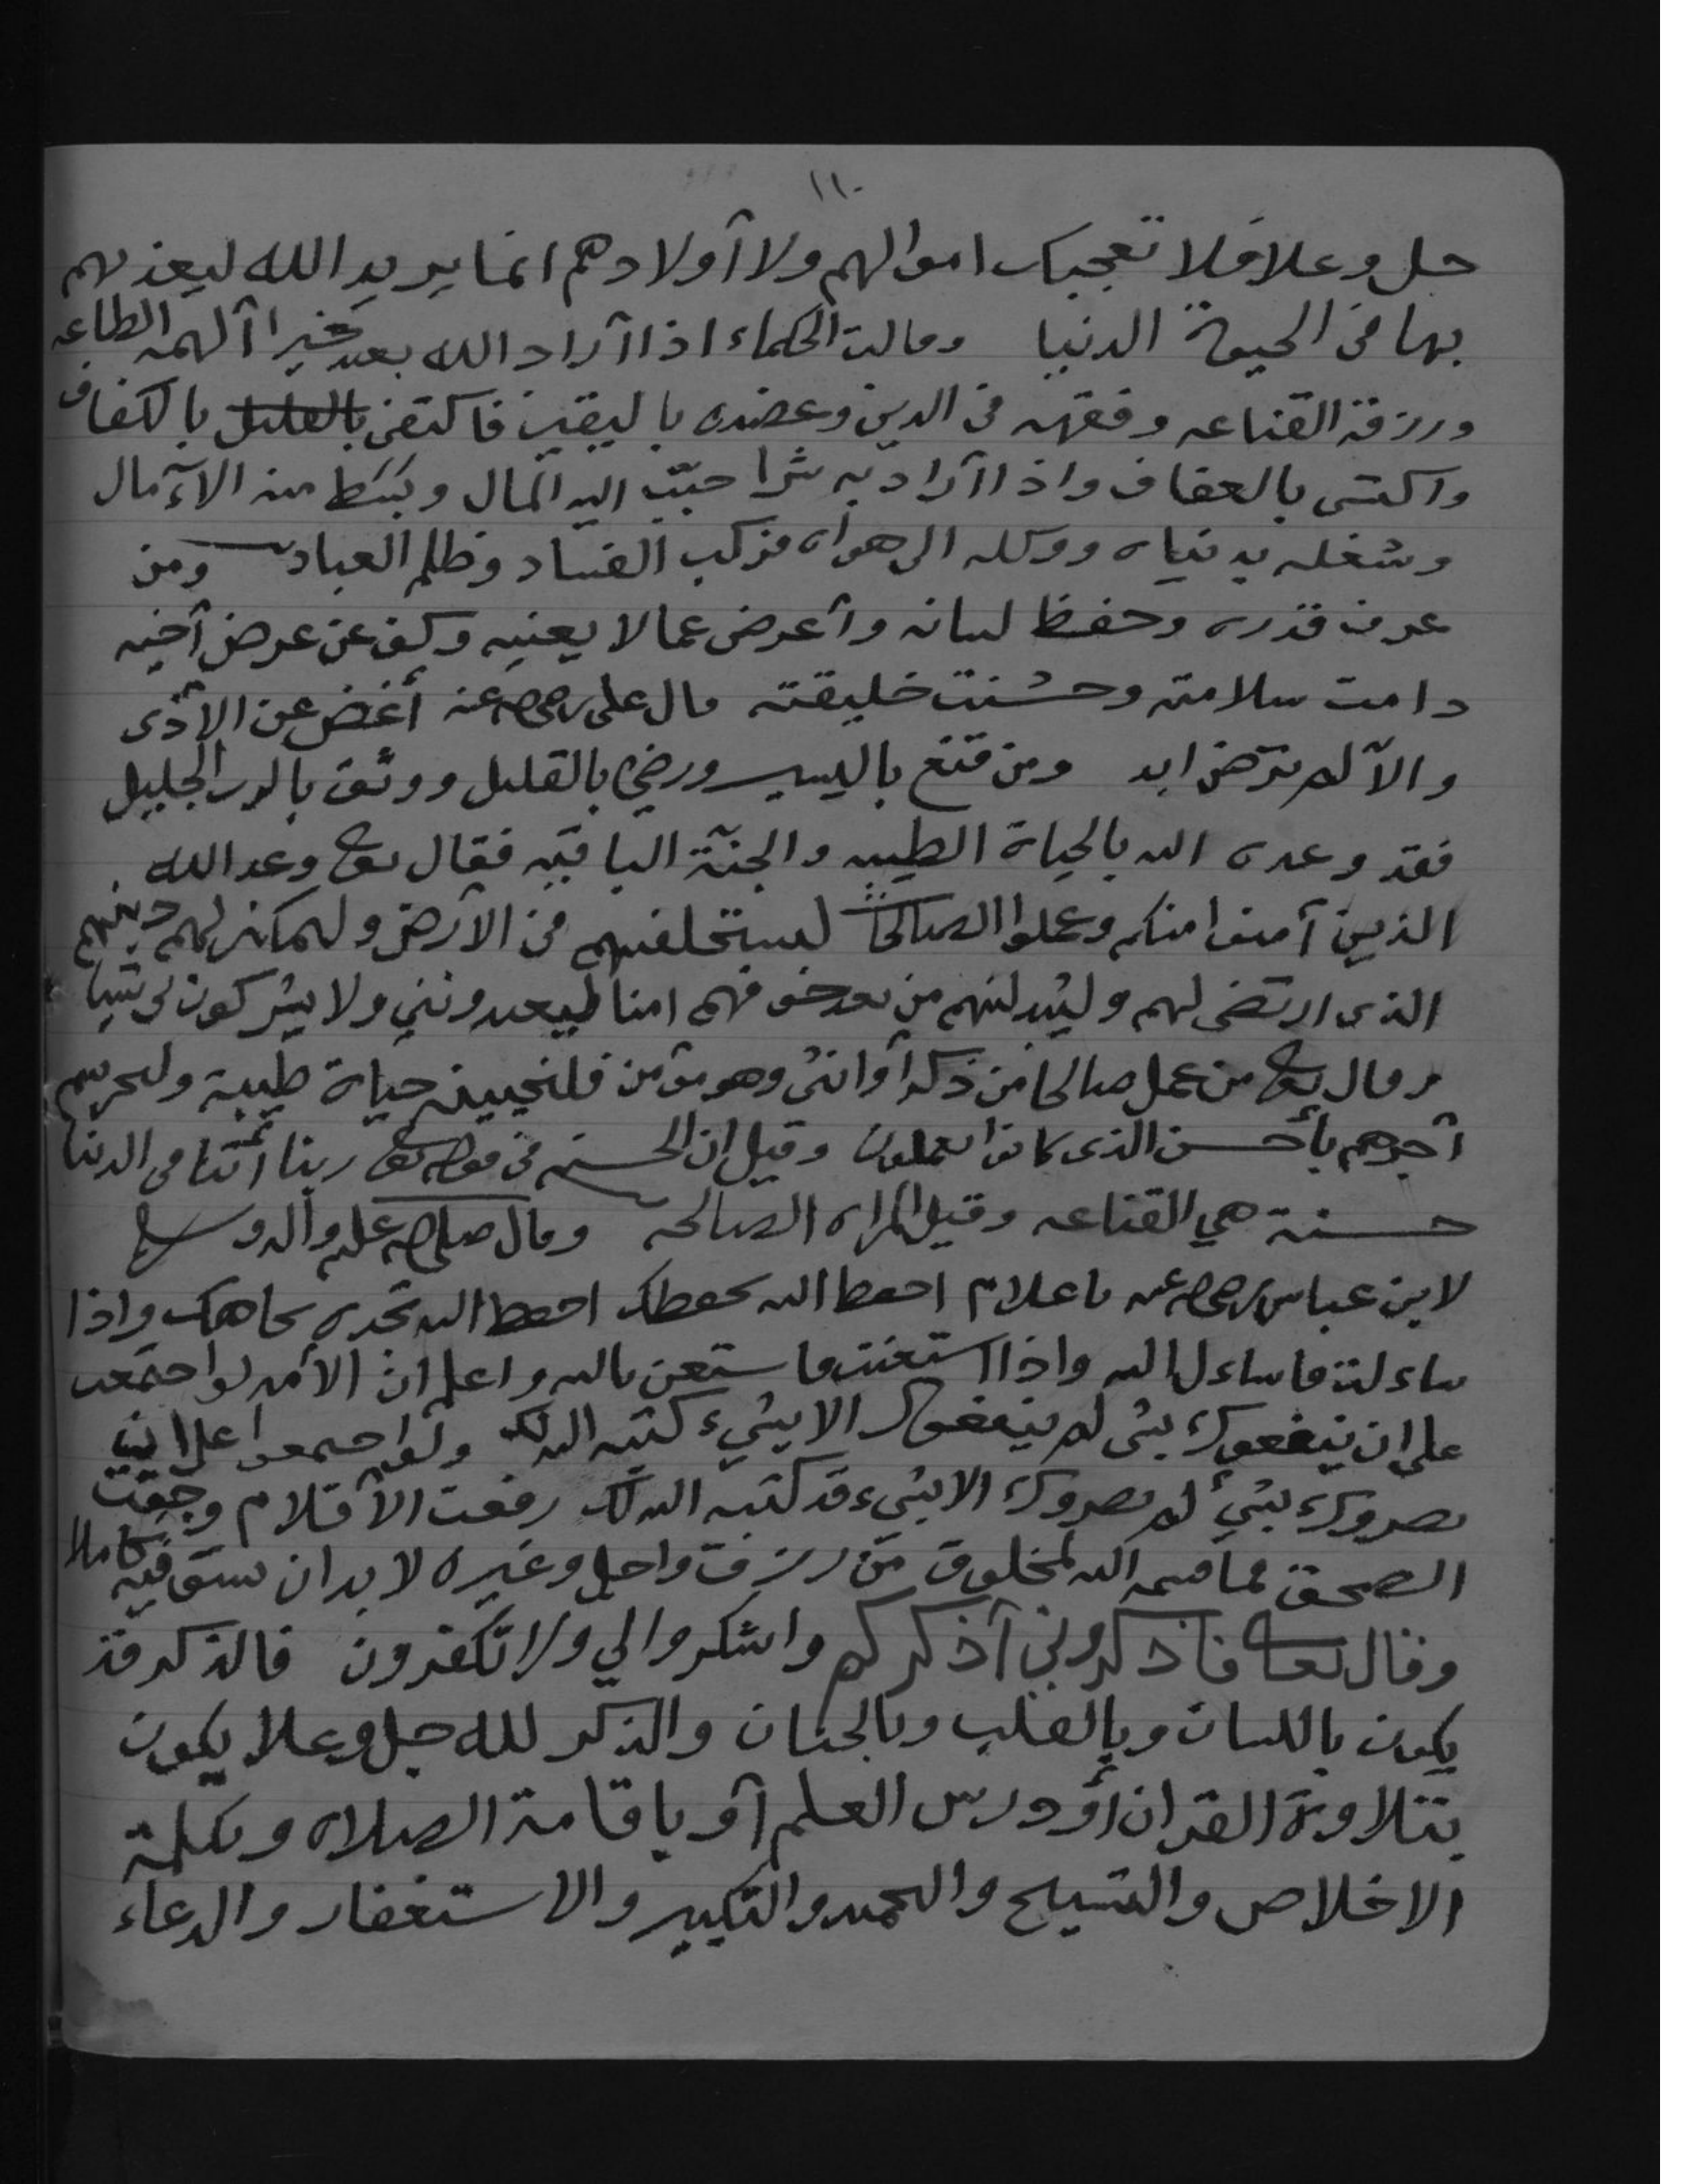 ١١٠
جل وعلا فلا تعجبك اموالهم ولا أولادهم انما يريد الله ليعذبهم
بها في الحيوة الدنيا وقالت الحكماء اذا أراد الله بعبد خيرا ألهمه الطاعه
ورزقه القناعه وفقهه في الدين وعضده باليقين فاكتفى بالقليل بالكفاف
واكتسى بالعفاف واذا أراد به شرا حبّب اليه المال وبسَط منه الآمال
وشغله بدنياه ووكله الى هواه فركب الفساد وظلم العباد ومن
عرف قدره وحفظ لسانه وأعرض عما لا يعنيه وكف عن عرض أخيه
دامت سلامته وحسُنت خليقته قال علي رضي الله عنه أغض عن الأذى
والآ لم ترضى ابد ومن قنع باليسير ورضي بالقليل ووثق بالرب الجليل
فقد وعده الله بالحياة الطيبه والجنّة الباقيه فقال تعالى وعد الله
الذين آمنوا منكم وعملوا الصالحات ليستخلفنهم في الأرض وليمكنن لهم دينهم
الذي ارتضى لهم وليبدلنهم من بعد خوفهم امنا يعبدونني ولا يشركون بي شيا
وقال تعالى من عمل صالحا من ذكر أو انثى وهو مؤمن فلنحيينه حياة طيبة ولنجزينهم
أجرهم بأحسن الذي كانوا يعملون وقيل ان الحسنه في قوله تعالى ربنا أتنا في الدنيا
حسنة هي القناعه وقيل المراه الصالحه وقال صلى الله عليه وآله وسلم
لابن عباس رضي الله عنه يا غلام احفظ الله يحفظك احفظ الله تجده تجاهك واذا
ساءلت فاساءل الله واذا استعنت فاستعن بالله واعلم ان الأمه لو اجتمعت
على ان ينفعوك بشى لم ينفعوك الا بشيء كتبه الله لك ولو اجمعوا على ان
يضروك بشيء لم يضروك الا بشيء قد كتبه الله لك رفعت الأقلام وجفت
الصحف فما قسمه الله لمخلوق من رزق واجل وغيره لا بد ان يستوفيه كاملا
وقال تعالى فاذكروني أذكركم واشكروا لي ولا تكفرون فالذكر قد
يكون باللسان وبالقلب وبالجنان والذكر لله جل وعلا يكون
بتلاوة القران أو درس العلم أو باقامة الصلاه وبكلمة
الاخلاص والتسبيح والحمد والتكبير والاستغفار والدعاء